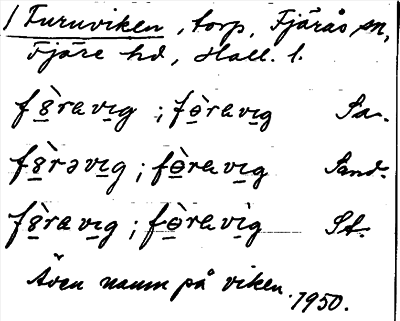 / Furuviken, torp, Fjärås sn,
Fjäre hd, Hall. l.
fȣ̠̀ravi̠g ; fò̠ravi̠g Sa.
fȣ̠̀rəvi̠g ; fò̠ravi̠g Sand.
fȣ̠̀ravi̠g ; fò̠ravìg St.
Även namn på viken.
1950.